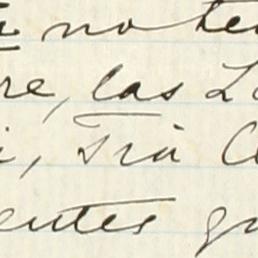 no te
re, las L
i, Tia
entes g